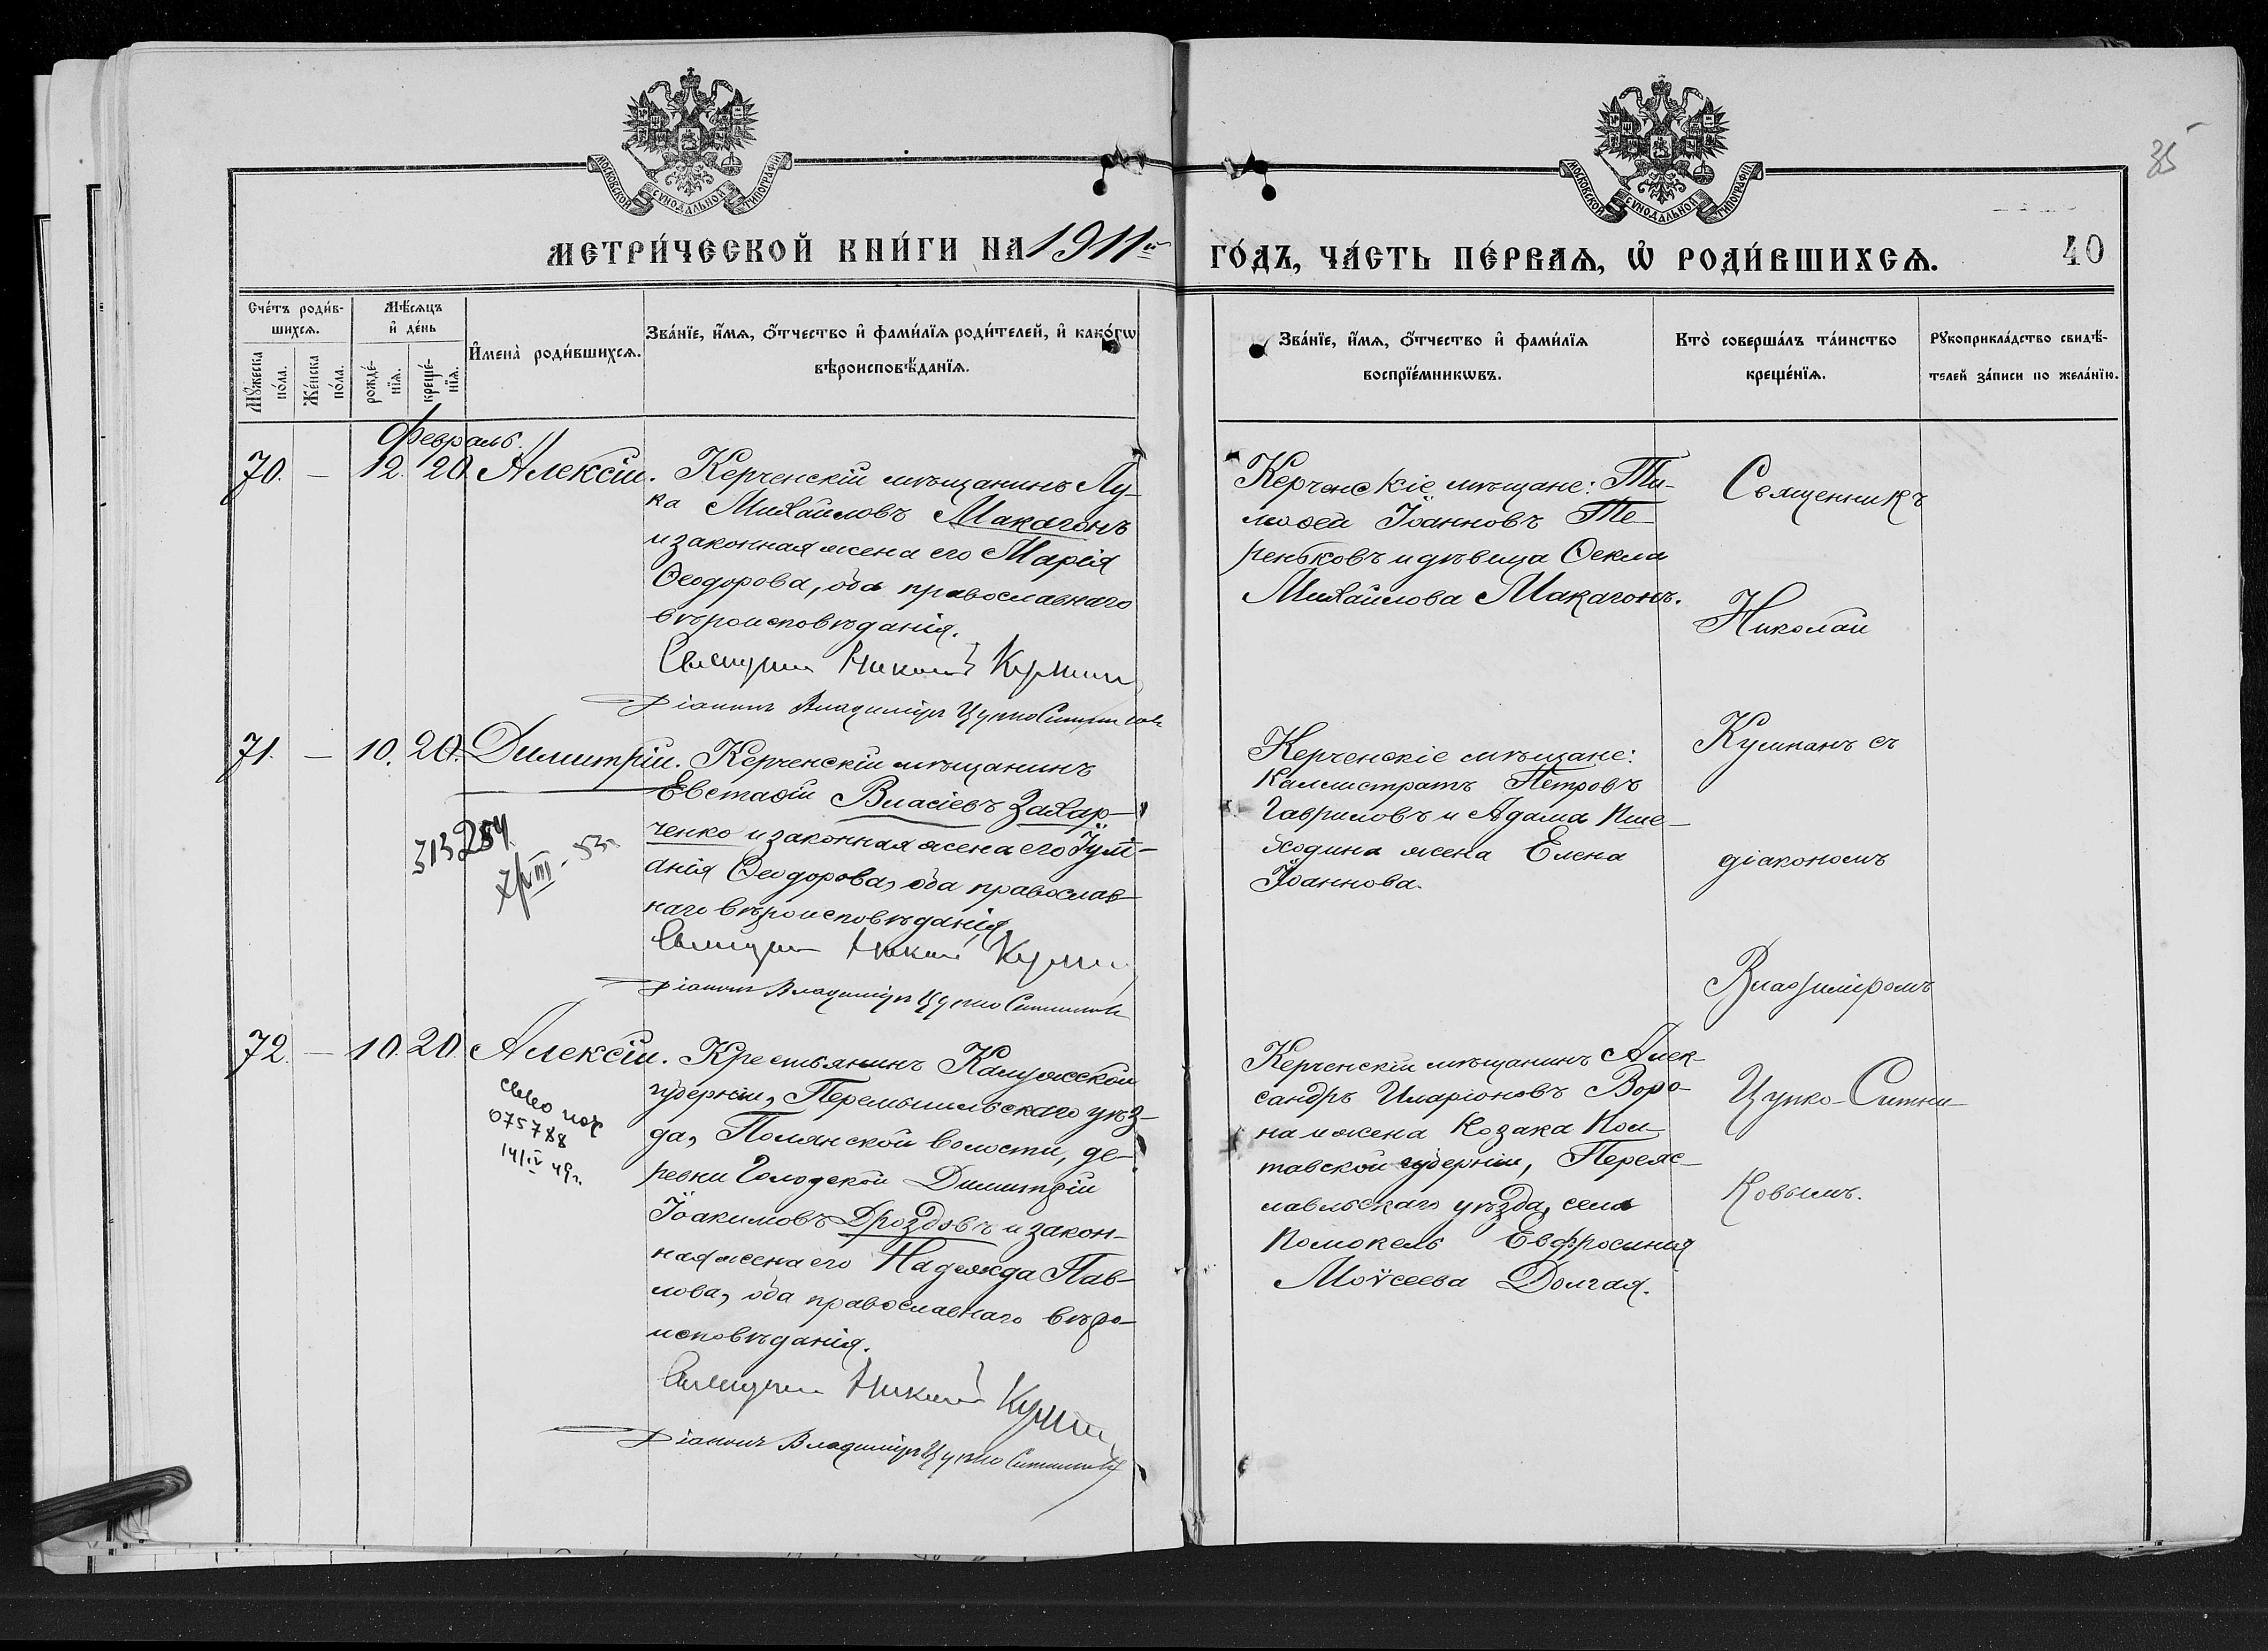 35
МОСКОВСКОЙ СѴНОДАЛЬНОЙ ТИПОГРАФІИ
МОСКОВСКОЙ СѴНОДАЛЬНОЙ ТИПОГРАФІИ
МЕТРИ́ЧЕСКОЙ КНИ́ГИ НА 1911й
ГО́ДЪ, ЧА́СТЬ ПЕ́РВАѦ, Ѽ РОДИ́ВШИХСѦ.
40
Сче́тъ роди́в-
шихсѧ.
Мꙋ́жеска
по́ла.
Же́нска
по́ла.
Мѣ́сѧцъ
и҆ де́нь
рожде́-
нїѧ.
креще́-
нїѧ.
И҆мена̀ роди́вшихсѧ.
Зва́нїе, и҆́мѧ, ѻ҆́тчество и҆ фами́лїѧ роди́телей, и҆ како́гѡ
вѣроисповѣ́данїѧ.
Зва́нїе, и҆́мѧ, ѻ҆́тчество и҆ фами́лїѧ
воспрїе́мникѡвъ.
Кто̀ соверша́лъ та́инство
креще́нїѧ.
Рꙋкоприкла́дство свидѣ́-
телей за́писи по жела́нїю.
Февраль.
70. — 12. 20. Алексій.
Керченскій мѣщанинъ Лу-
ка Михайловъ Макагонъ
и законная жена его Марія
Ѳеодорова, оба православнаго
вѣроисповѣданія.
Священникъ Николай Кумпан
Діаконъ Владиміръ Цупко Ситников
Керченскіе мѣщане: Ти-
моѳей Іоанновъ Те-
реньковъ и дѣвица Ѳекла
Михайлова Макагонъ.
71. — 10. 20. Димитрій.
Керченскій мѣщанинъ
Евстаѳій Власіевъ Захар-
ченко и законная жена его Іулі-
анія Ѳеодорова, оба православ-
наго вѣроисповѣданія
Священникъ Николай Кумпан
Діаконъ Владиміръ Цупко Ситников
313254
7/VIII-53г
Керченскіе мѣщане:
Каллистратъ Петровъ
Гавриловъ и Адама Пше-
ходина жена Елена
Іоаннова.
72. — 10. 20. Алексій.
Крестьянинъ Калужской
губерніи, Перемышльскаго уѣз-
да, Полянской волости, де-
ревни Голодской Димитрій
Іоакимовъ Дроздовъ и закон-
ная жена его Надежда Пав-
лова, оба православнаго вѣро-
исповѣданія.
Священникъ Николай Кумпан
Діаконъ Владиміръ Цупко Ситников
075788
14/IV 49г.
Керченскій мѣщанинъ Алек-
сандръ Иларіоновъ Воро-
на и жена Козака Пол-
тавской губерніи, Переяс-
лавльскаго уѣзда, села
Помокель Евфросинія
Моѵсеева Долгая.
Священникъ
Николай
Кумпанъ съ
діакономъ
Владиміромъ
Цупко-Ситни-
ковымъ.